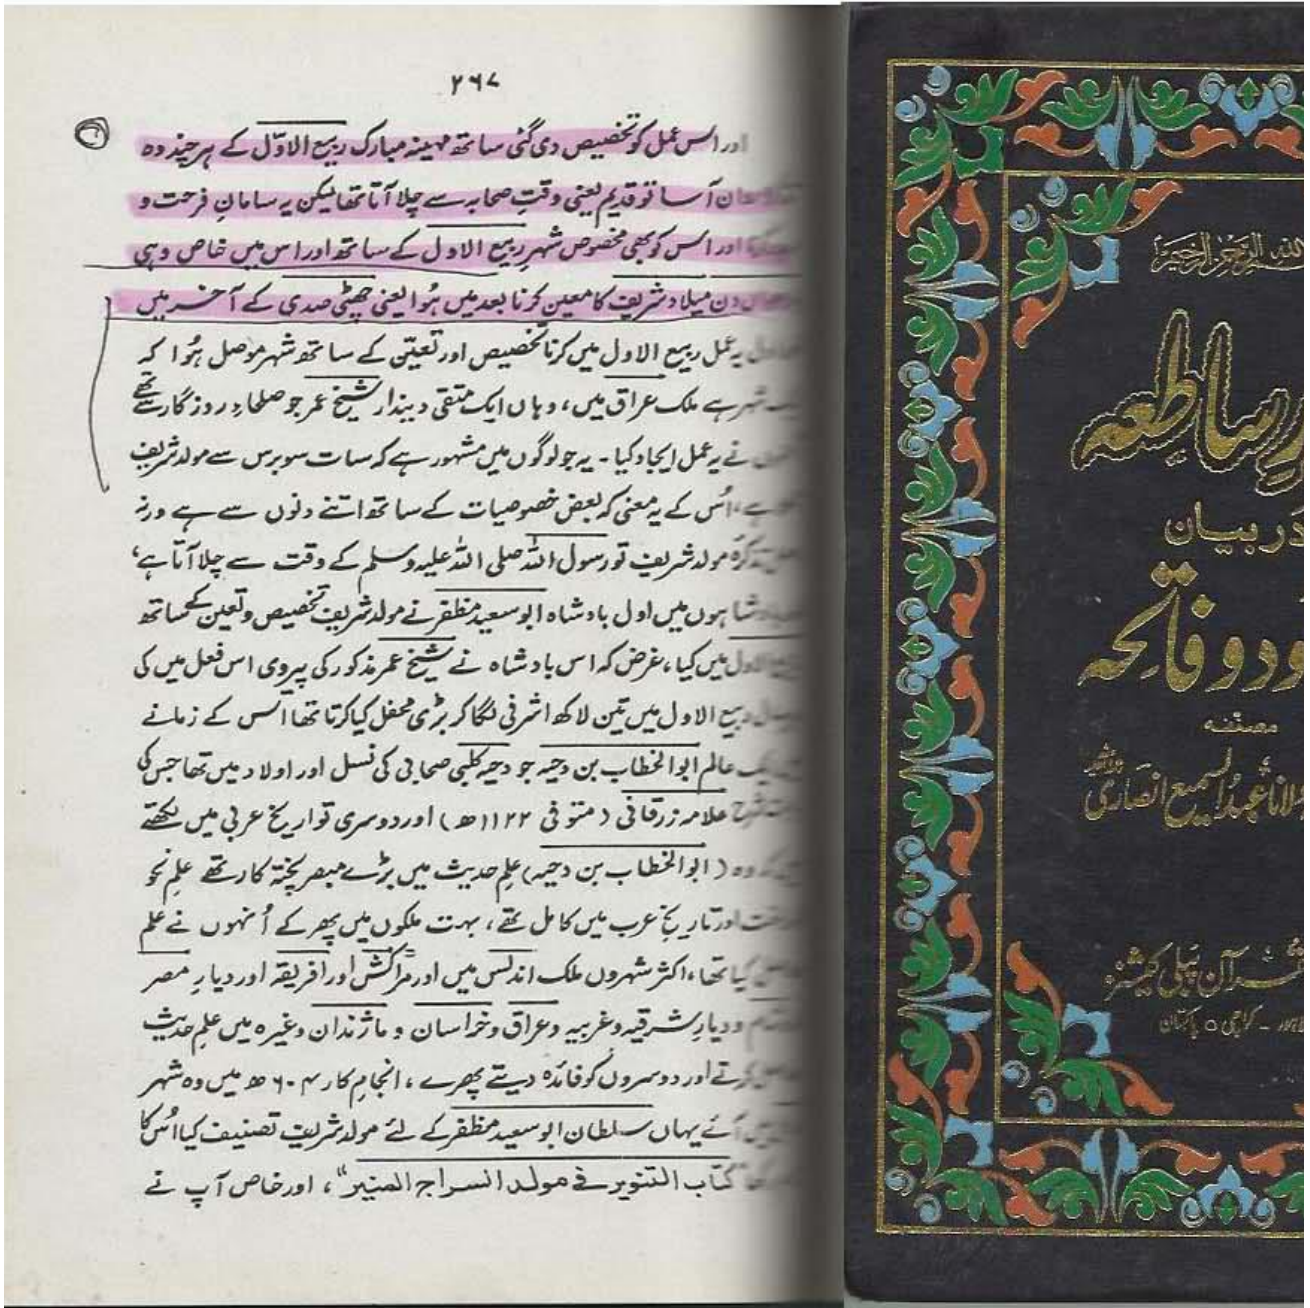 ۲۶۷
اور اس عمل کو تخصیص دی گئی ساتھ مہینہ مبارک ربیع الاوّل کے ہر چند وہ
آسا تو قدیم یعنی وقتِ صحابہ سے چلا آتا تھا لیکن یہ سامانِ فرحت و
اور اس کو بھی مخصوص شہرِ ربیع الاول کے ساتھ اور اس میں خاص وہی
دن میلاد شریف کا معین کرنا بعد میں ہُوا یعنی چھٹی صدی کے آخر میں
یہ عمل ربیع الاول میں کرنا تخصیص اور تعیّن کے ساتھ شہر موصل ہُوا کہ
شہر ہے ملک عراق میں، وہاں ایک متقی دیندار شیخ عمر جو صلحاءِ روزگار سے تھے
نے یہ عمل ایجاد کیا۔ یہ جو لوگوں میں مشہور ہے کہ سات سو برس سے مولد شریف
ہے، اُس کے یہ معنی کہ بعض خصوصیات کے ساتھ اتنے دنوں سے ہے ورنہ
تذکرہ مولد شریف تو رسول اللہ صلی اللہ علیہ وسلم کے وقت سے چلا آتا ہے،
بادشاہوں میں اول بادشاہ ابو سعید مظفر نے مولد شریف تخصیص و تعین کے ساتھ
ربیع الاول میں کیا، غرض کہ اس بادشاہ نے شیخ عمر مذکور کی پیروی اس فعل میں کی
ربیع الاول میں تین لاکھ اشرفی لگا کر بڑی محفل کیا کرتا تھا اس کے زمانے
ایک عالم ابوالخطاب بن دحیہ جو دحیہ کلبی صحابی کی نسل اور اولاد میں تھا جس کی
شرح علامہ زرقانی (متوفی ۱۱۲۲ھ) اور دوسری تواریخ عربی میں لکھتے
کہ وہ (ابوالخطاب بن دحیہ) علم حدیث میں بڑے مبصر پختہ کار تھے علم نحو
اور تاریخ عرب میں کامل تھے، بہت ملکوں میں پھر کے اُنہوں نے علم
کیا تھا، اکثر شہروں ملک اندلس میں اور مراکش اور افریقہ اور دیارِ مصر
و دیارِ شرقیہ و غربیہ و عراق و خراسان و ماژندان وغیرہ میں علم حدیث
کرتے اور دوسروں کو فائدہ دیتے پھرے، انجام کار ۶۰۴ھ میں وہ شہر
آئے یہاں سلطان ابو سعید مظفر کے لئے مولد شریف تصنیف کیا اُس کا
کتاب التنویر فی مولد السراج المنیر"، اور خاص آپ نے
ساطعہ
در بیان
ود و فاتحہ
مصنفہ
عبدُالسمیع انصاری
قرآن پبلی کیشنز
لاہور - کراچی ○ پاکستان